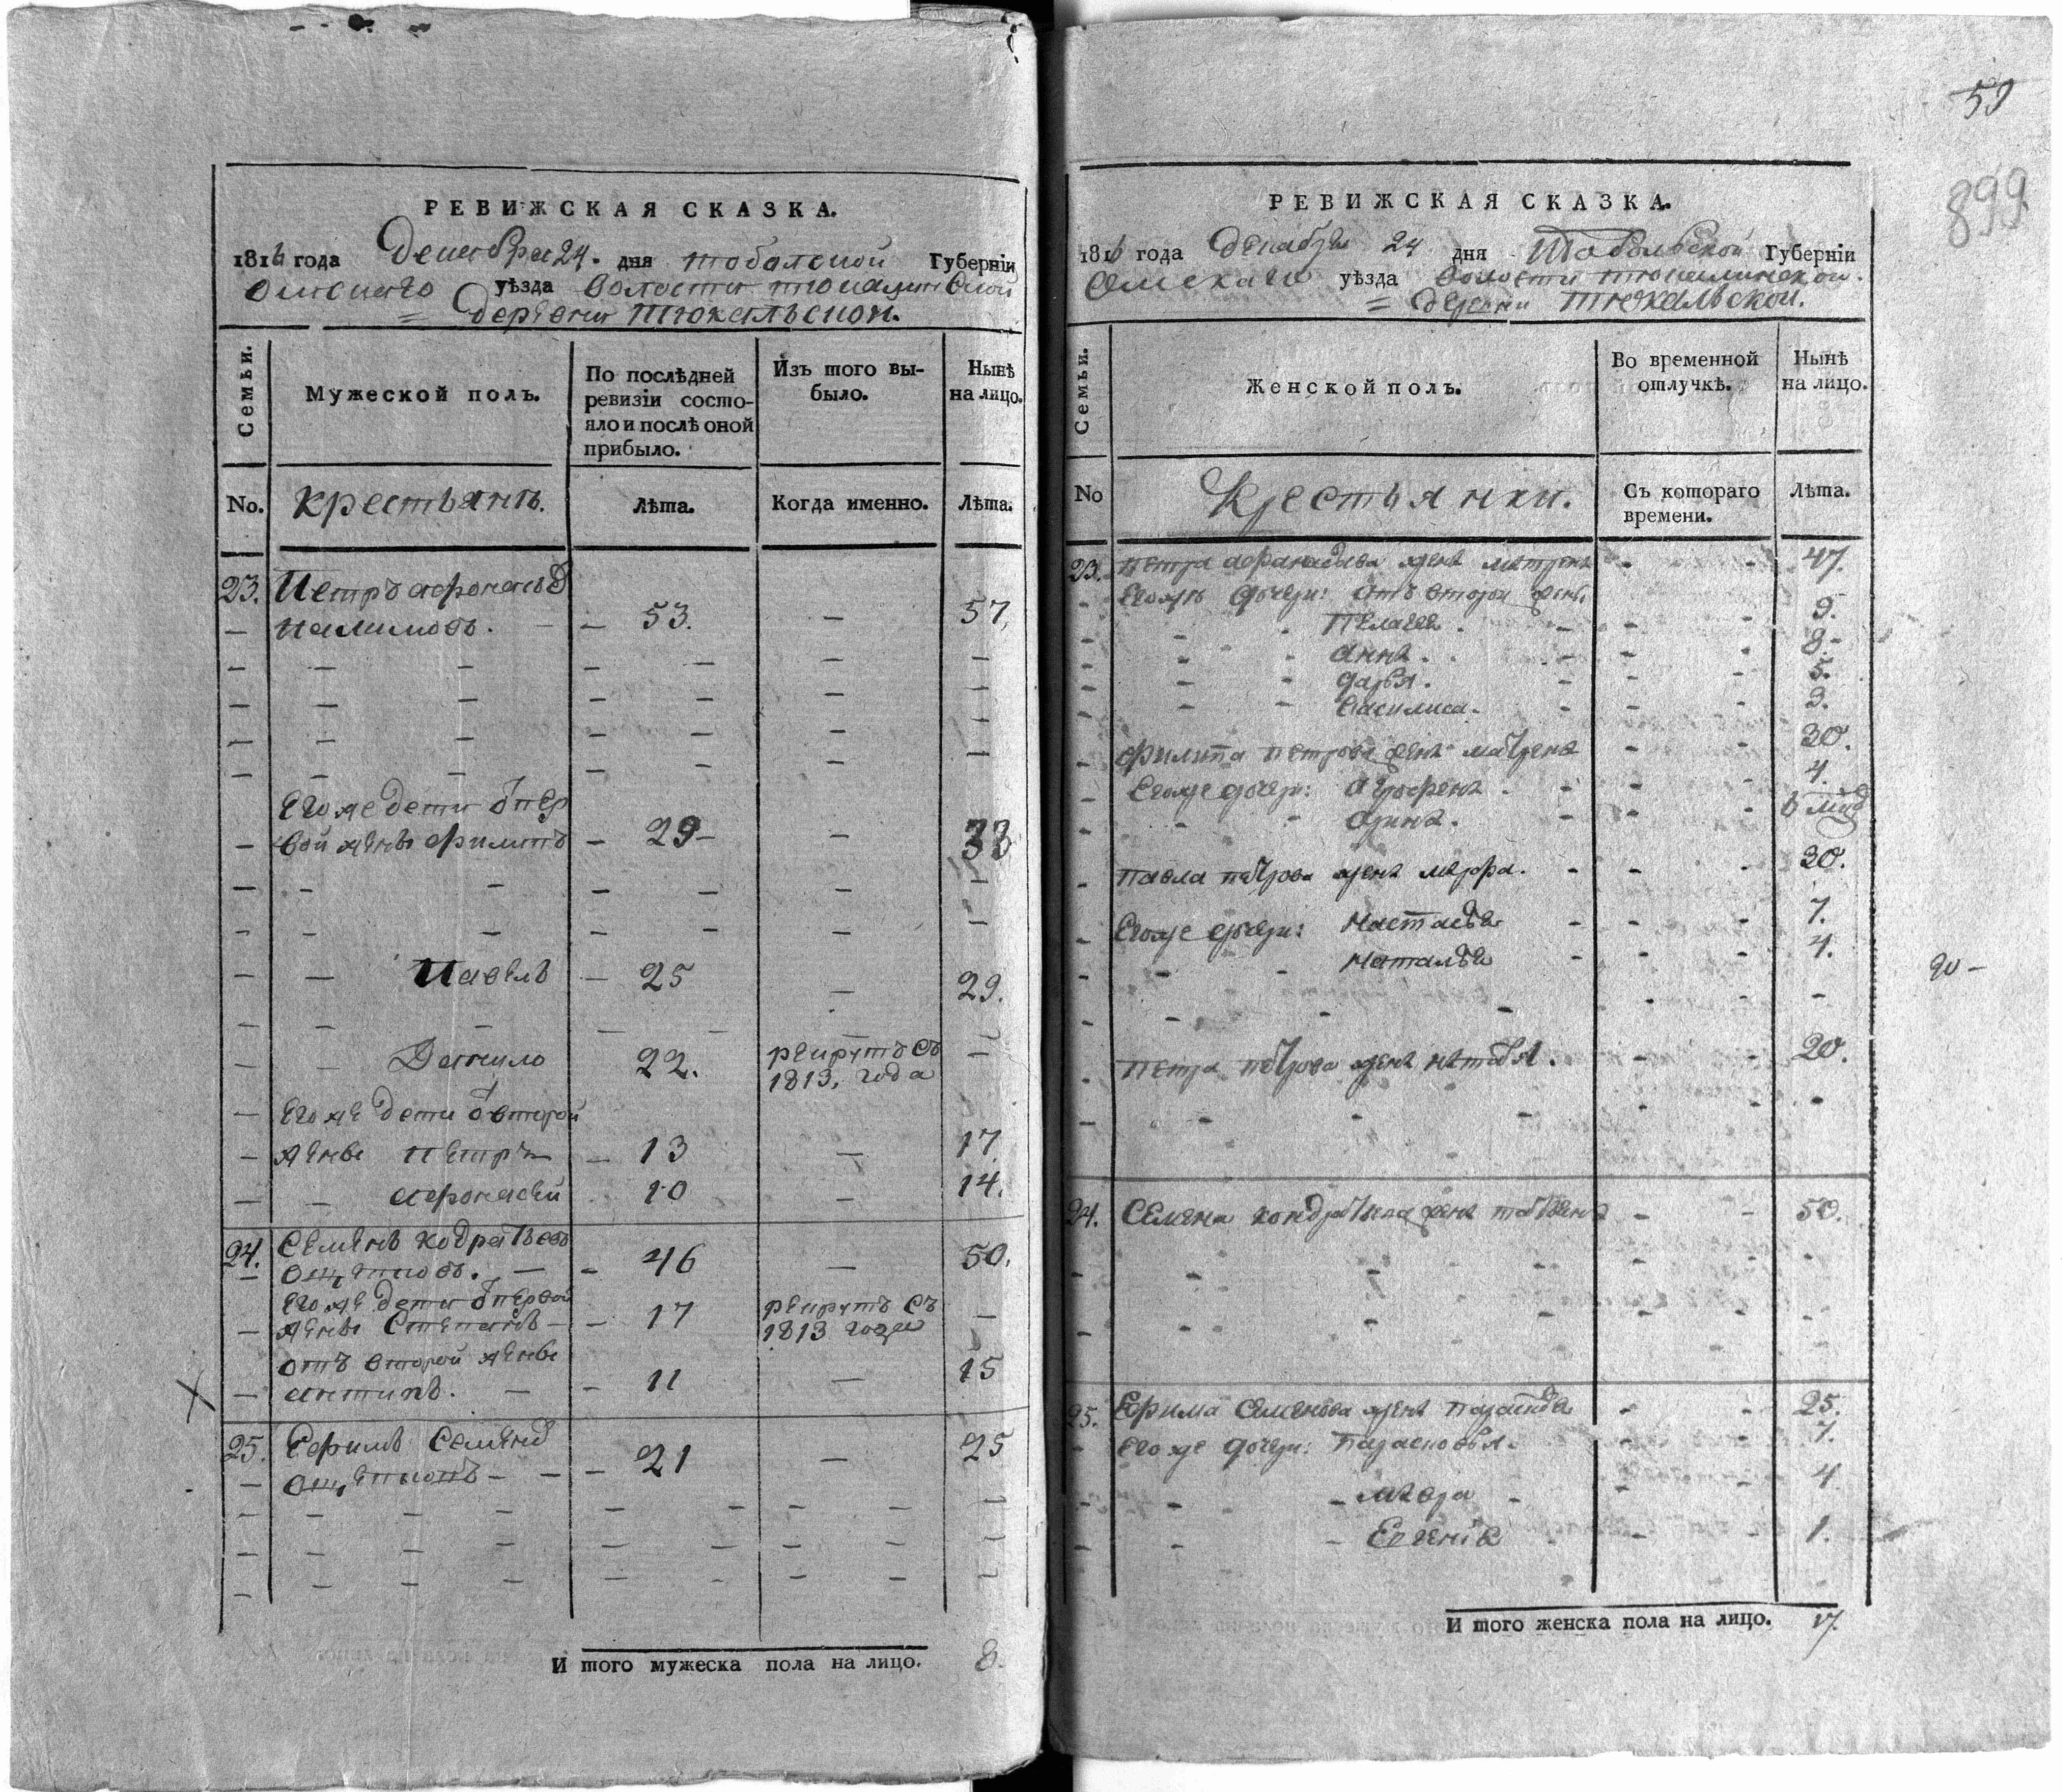 59
899
РЕВИЖСКАЯ СКАЗКА.
1816 года Декабря 24. дня тобалской Губерніи
Омскаго уѣзда волости тюкалинской
= деревни Тюкальской.
Семьи.
Мужеской полъ.
По послѣдней ревизіи состо-
яло и послѣ оной
прибыло.
Изъ того вы-
было.
Нынѣ
на лицо.
No. крестьянъ.
Лѣта.
Когда именно.
Лѣта.
23. Петръ афонасьев
Налимовъ. - - 53. - 57,
Его же дети от пер
вой жены филипъ - 29 - - 33
- - Павелъ - 25 - 29.
- - Данило 22. рекрутъ съ -
1813, года
- Его же дети от второй
- жены петръ - 13 - 17
- - афонасей 10 - 14.
24. Семенъ кодратьевъ
- - - 46 - 50.
Его же дети от первой
- жены Степанъ - - 17 рекрутъ съ -
1813 года
отъ второй жены
- антипъ. - - 11 - 15
25. Ефимъ Семенов
- - - 21 - 25
И того мужеска пола на лицо. 8.
РЕВИЖСКАЯ СКАЗКА.
1816 года Декабря 24 дня Тобольской Губерніи
Омскаго уѣзда волости тюкалинской.
= Деревни тюкальской.
Семьи.
Женской полъ.
Во временной
отлучкѣ.
Нынѣ
на лицо.
No Крестьянки.
Съ котораго
времени.
Лѣта.
23. петра афанасьева жена матрена - - 47.
Егожъ дочери: отъ второй жены
Пелагея - - 9.
анна. - - 8.
дарья. - - 5.
василиса. - - 3.
филипа петрова жена матрена - - 30.
Егоже дочери: аграфена - - 4.
арина. - - 6 мѣс
павла петрова жена мавра. - - 30.
Егоже дочери: Настасья - - 7.
Наталья - - 4.
петра петрова жена наталья. - - 20.
24. Семена кондратьева жена татьяна - - 50.
25. Ефима Семенова жена - - 25.
Его же дочери: Парасковья. - 7.
- мавра - 4
- Евгенiя - 1.
И того женска пола на лицо. 17.